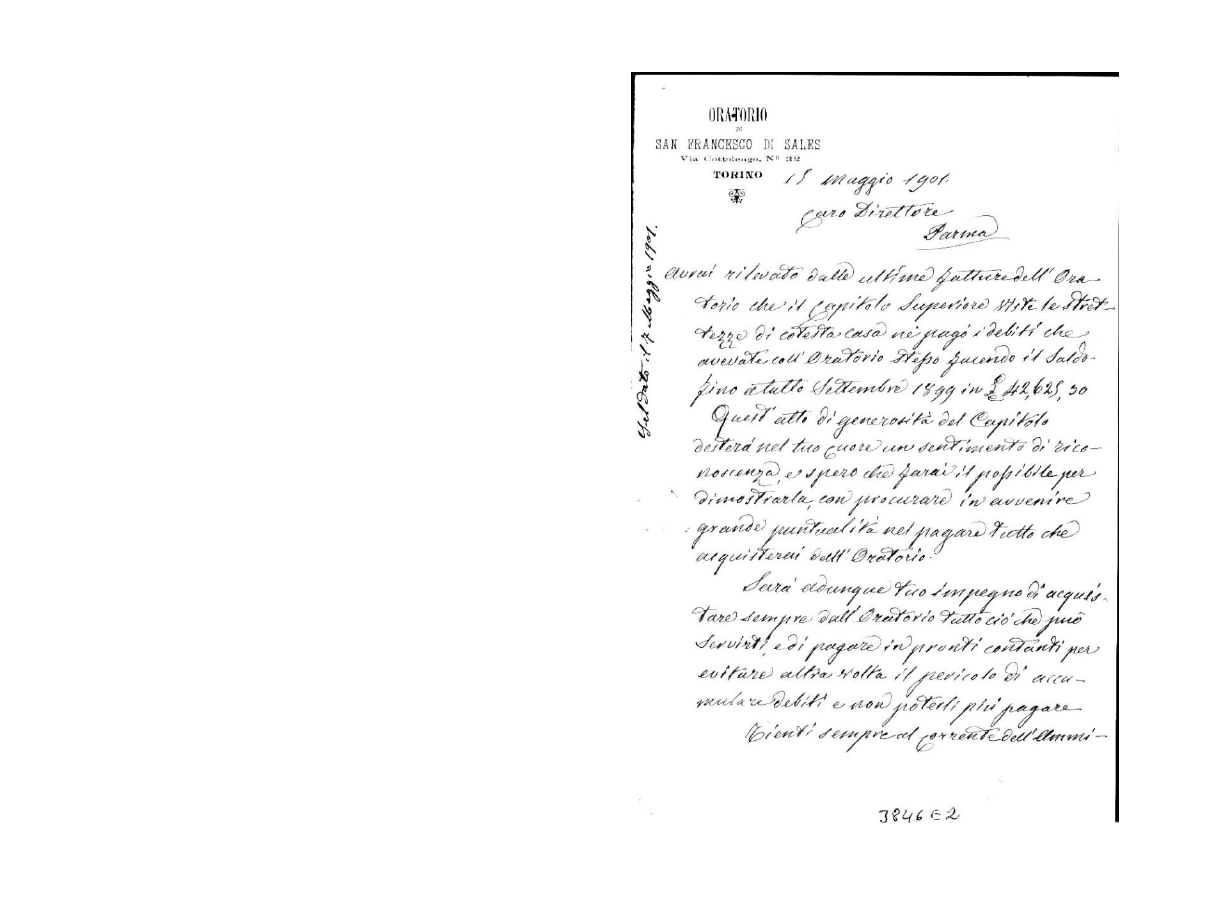 ORATORIO
DI
SAN FRANCESCO DI SALES
Via Cottolengo, Nº 32
TORINO
15 Maggio 1901.
Caro Direttore
Parma
Avrai rilevato dalle ultime fatture dell' Ora
torio che il Capitolo Superiore viste le stret-
tezze di cotesta casa ne pagó i debiti che
avevate coll' Oratorio stesso facendo il Saldo
fino a tutto Settembre 1899 in £ 42,625,30
Quest' atto di generosità del Capitolo
desterá nel tuo cuore un sentimento di rico-
noscenza, e spero che farai il possibile per
dimostrarla, con procurare in avvenire
grande puntualità nel pagare tutto che
acquisterai dall' Oratorio.
Sará adunque tuo impegno di acquis-
tare sempre dall' Oratorio tutto ció che può
servirti, e di pagare in pronti contanti per
evitare altra volta il pericolo di accu-
mulare debiti e non poterli piú pagare
Tienti sempre al corrente dell' Ammi-
dato 17 Maggio 1901.
3846 E 2